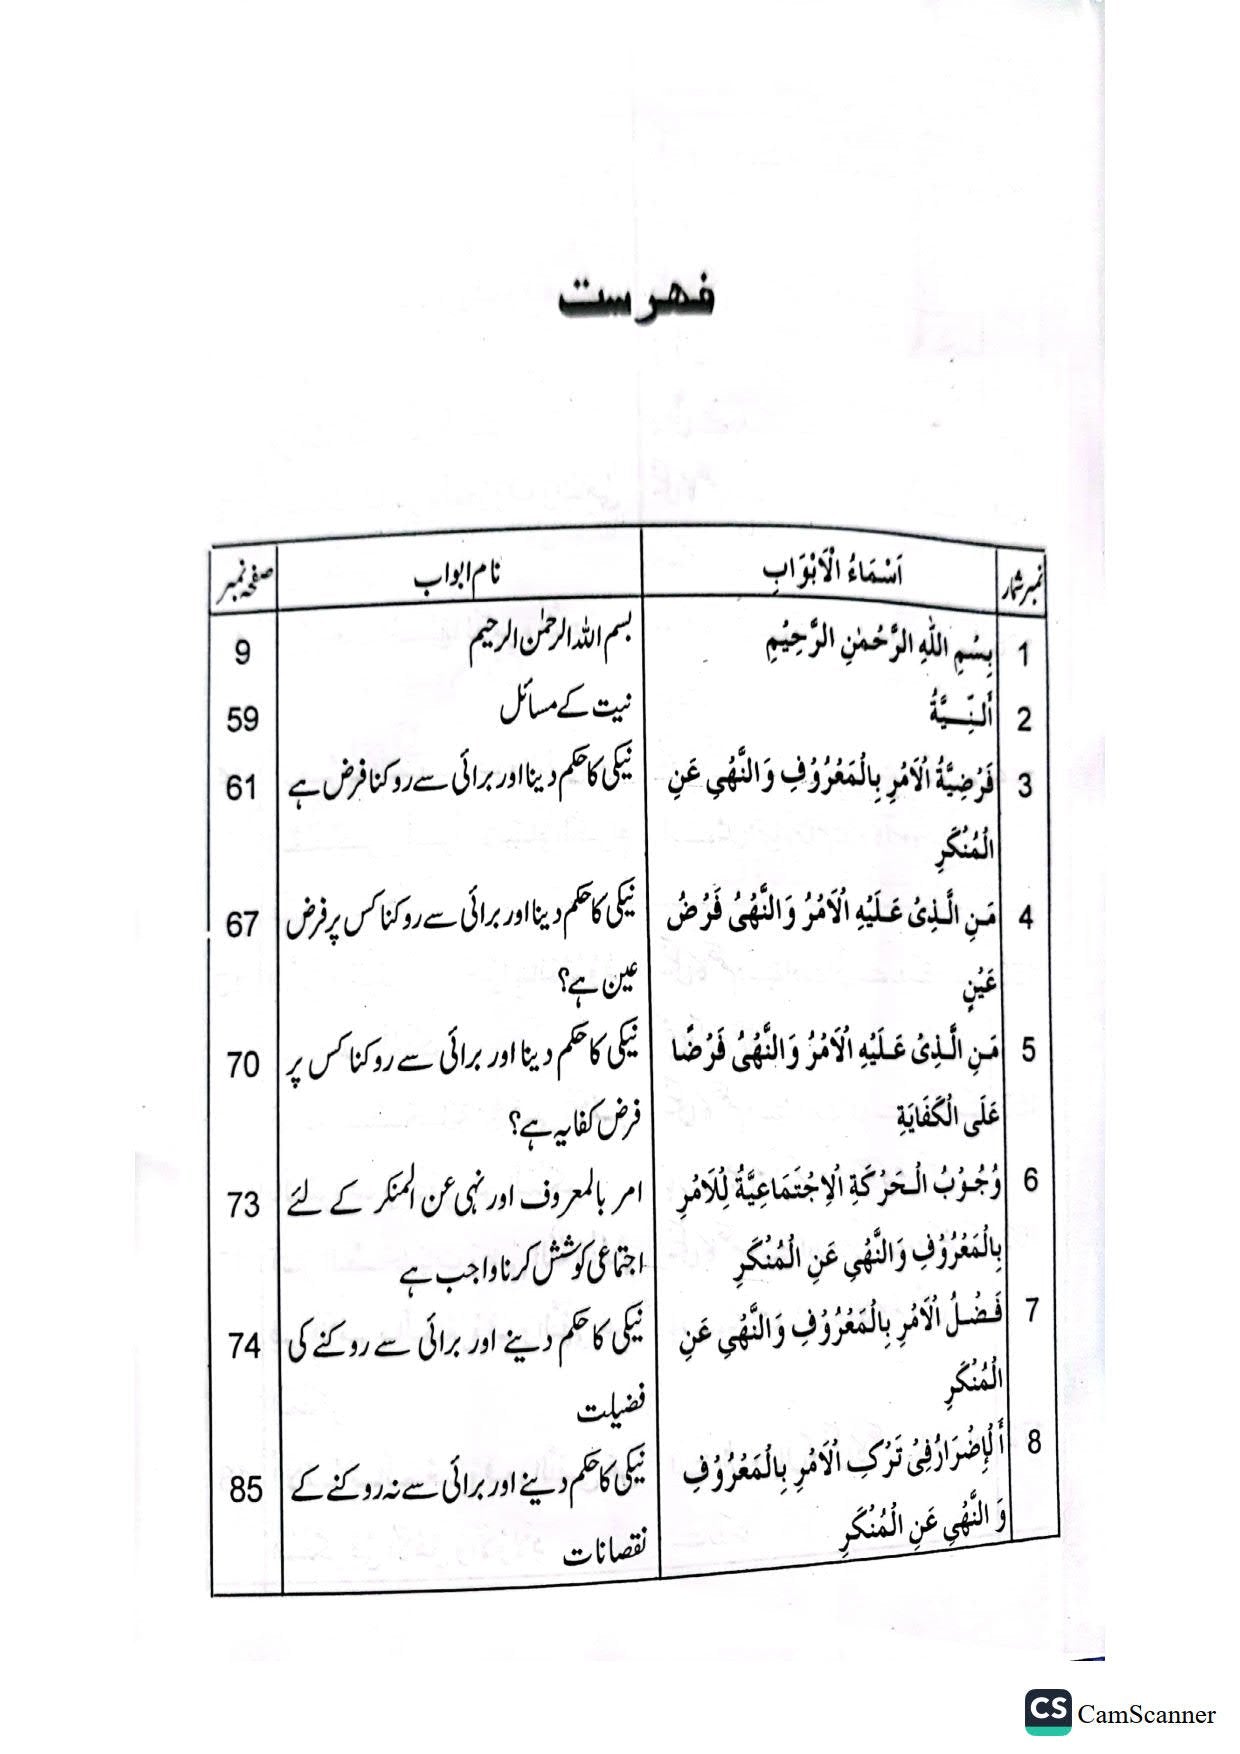 فهرست
نمبر شمار اَسْمَاءُ الْاَبْوَابِ نام ابواب صفحہ نمبر
1 بِسْمِ اللّٰهِ الرَّحْمٰنِ الرَّحِيْمِ بسم اللہ الرحمٰن الرحیم 9
2 أَلنِّيَّةُ نیت کے مسائل 59
3 فَرْضِيَّةُ الْاَمْرِ بِالْمَعْرُوْفِ وَالنَّهْىِ عَنِ نیکی کا حکم دینا اور برائی سے روکنا فرض ہے 61
الْمُنْكَرِ
4 مَنِ الَّذِىْ عَلَيْهِ الْاَمْرُ وَالنَّهْىُ فَرْضُ نیکی کا حکم دینا اور برائی سے روکنا کس پر فرض 67
عَيْنٍ عین ہے؟
5 مَنِ الَّذِىْ عَلَيْهِ الْاَمْرُ وَالنَّهْىُ فَرْضًا نیکی کا حکم دینا اور برائی سے روکنا کس پر 70
عَلَى الْكَفَايَةِ فرض کفایہ ہے؟
6 وُجُوْبُ الْحَرْكَةِ الْاِجْتَمَاعِيَّةُ لِلْاَمْرِ امر بالمعروف اور نہی عن المنکر کے لئے 73
بِالْمَعْرُوْفِ وَالنَّهْىِ عَنِ الْمُنْكَرِ اجتماعی کوشش کرنا واجب ہے
7 فَضْلُ الْاَمْرِ بِالْمَعْرُوْفِ وَالنَّهْىِ عَنِ نیکی کا حکم دینے اور برائی سے روکنے کی 74
الْمُنْكَرِ فضیلت
8 أَلْإِضْرَارُ فِىْ تَرْكِ الْاَمْرِ بِالْمَعْرُوْفِ نیکی کا حکم دینے اور برائی سے نہ روکنے کے 85
وَ النَّهْىِ عَنِ الْمُنْكَرِ نقصانات
CS CamScanner